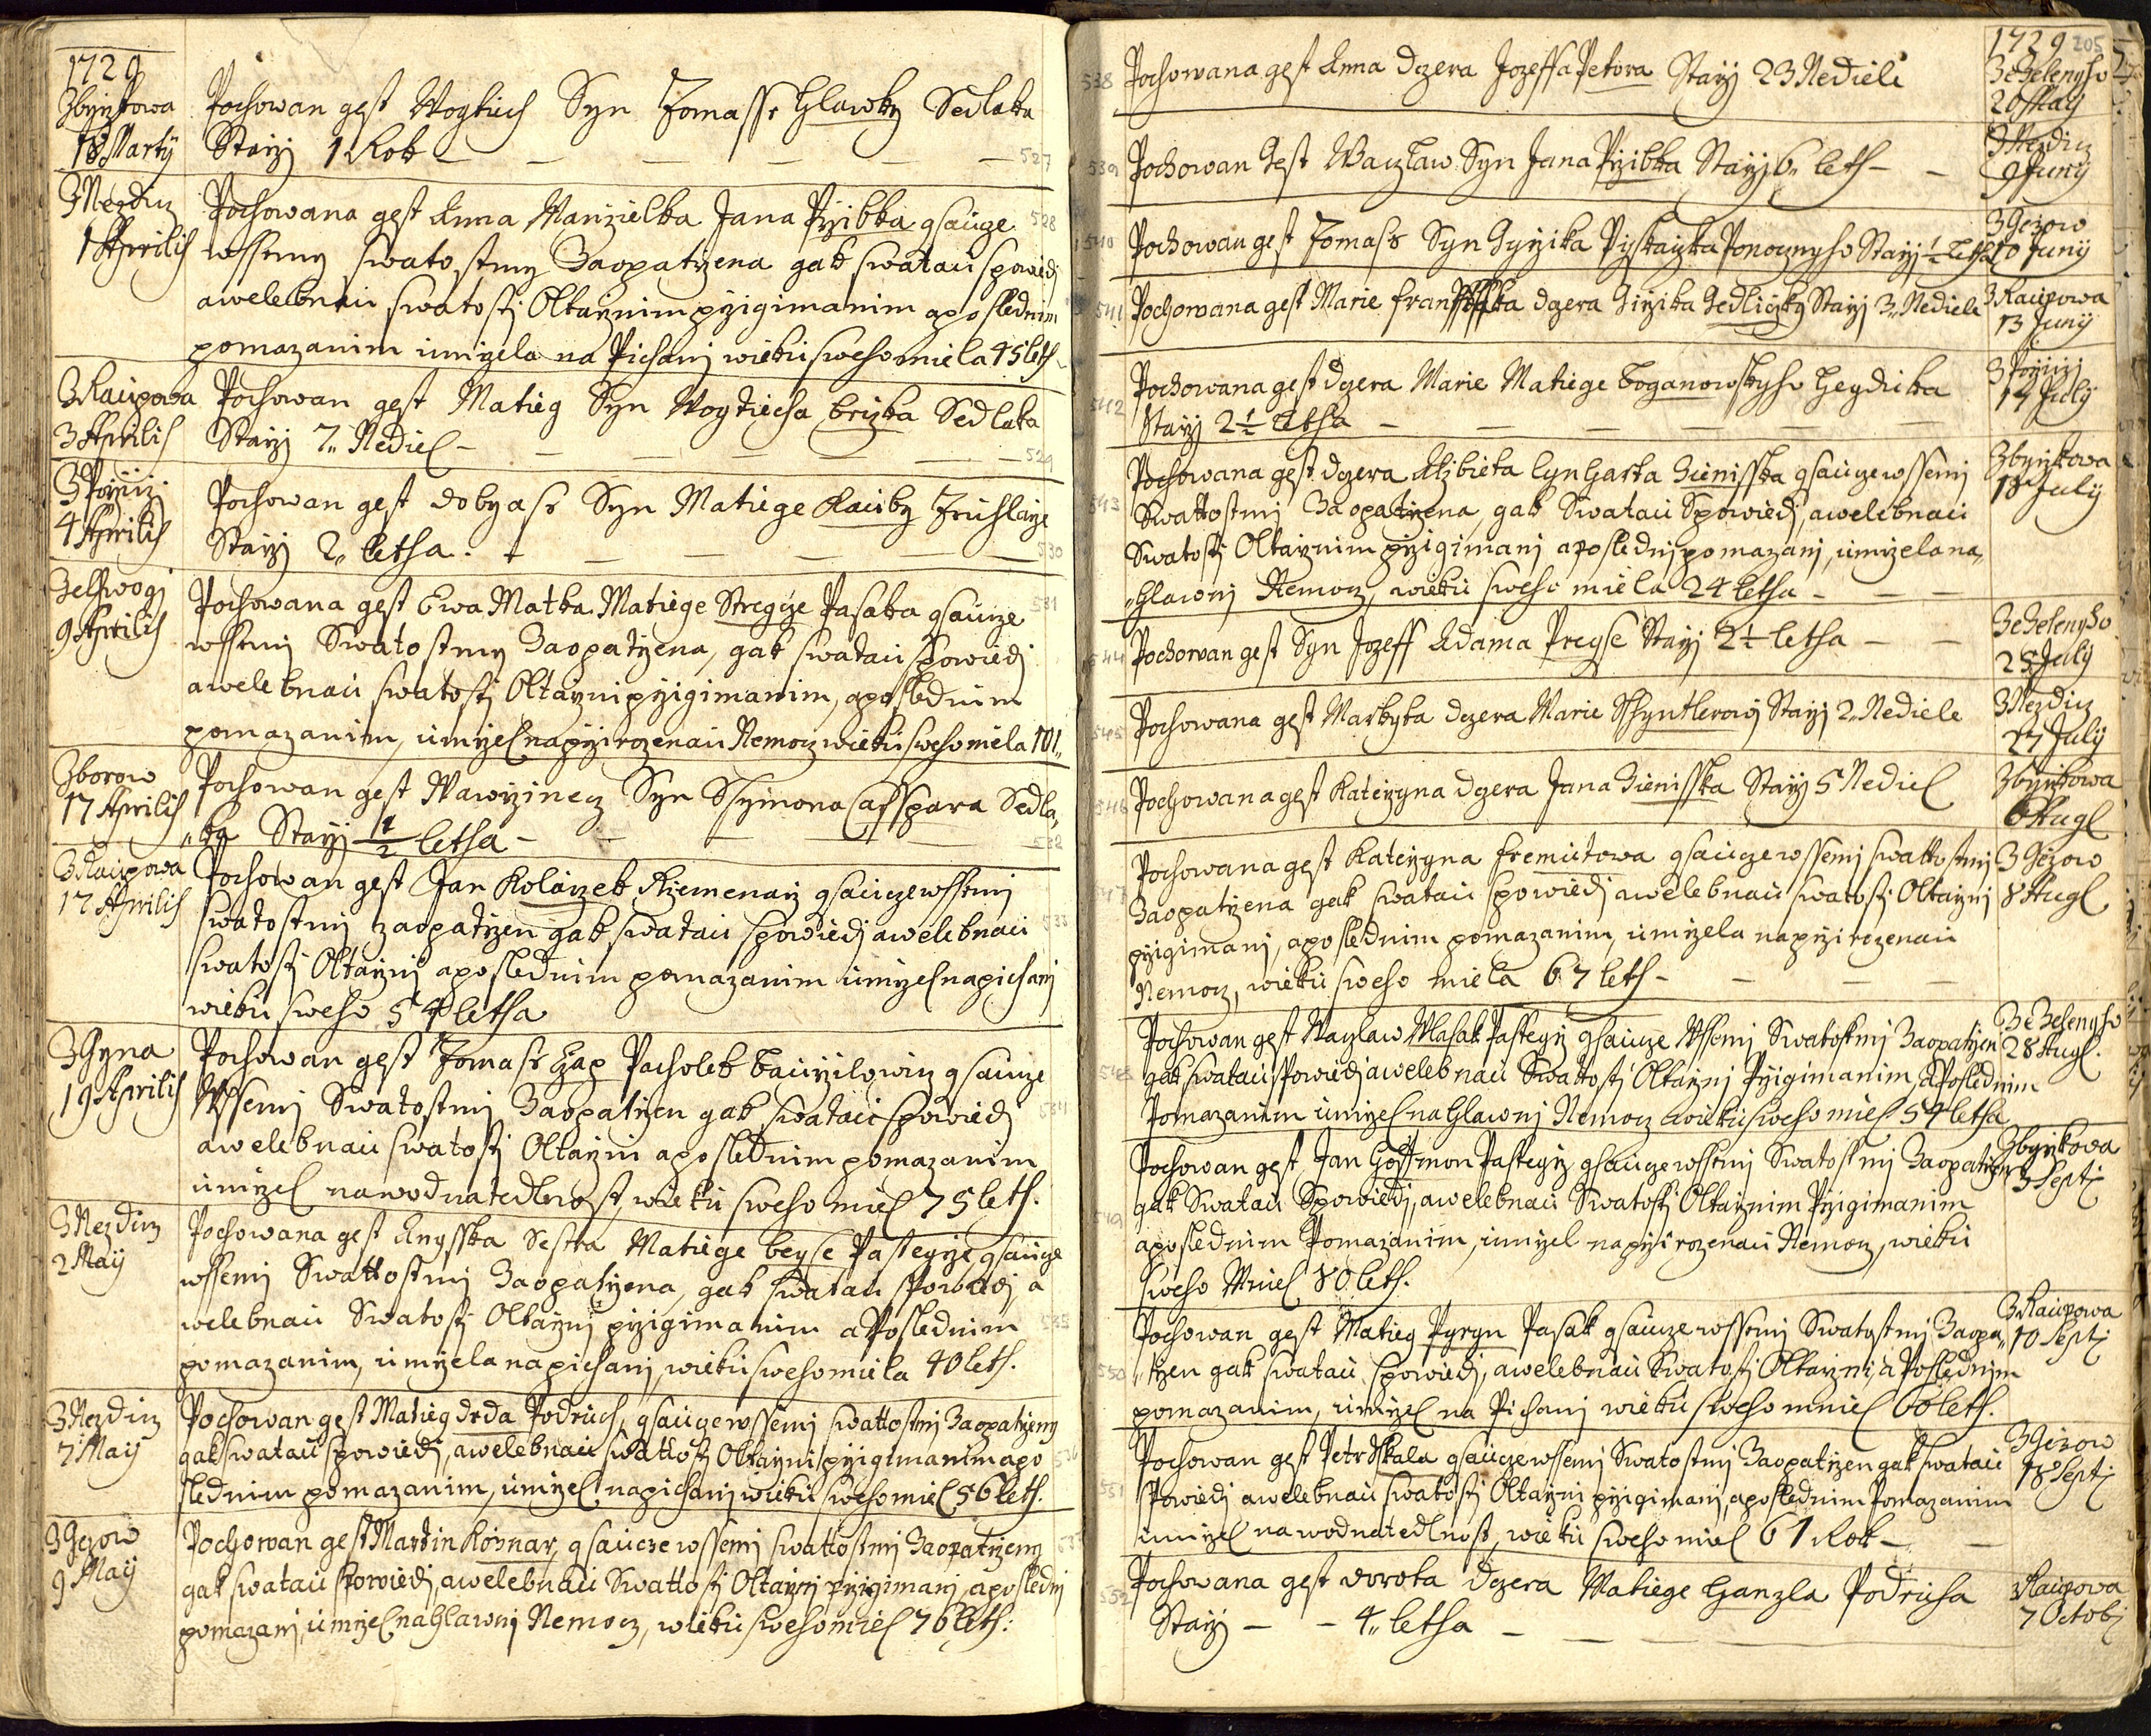 1729
Zbynkowa
18 Martij
Pochowan gest Wogtiech Syn Tomasse Hlawky Sedlaka
Starzj 1 Rok — 527
Z Nezdicz
1 Aprilis
Pochowana gest Anna Manzielka Jana Przibka gsaucze 528
wssemy swatostmy Zaopatrzena gak swatau spowiedj
a welebnau swatostj Oltarznim przigimanim a poslednim
pomazanim umrzela na Pichanj wieku sweho miela 45 leth
Z Raupowa
3 Aprilis
Pochowan gest Matieg Syn Wogtiecha Brizka Sedlaka
Starzj 7 Nediel — 529
Z Porziz.
4 Aprilis
Pochowan gest Dobyass Syn Matiege Kauby Truhlarze
Starzj 2 letha. — 530
Ze Lhwogj
9 Aprilis
Pochowana gest Ewa Matka Matiege Stregcze Pasaka gsaucze 531
wssemj Swatostmy Zaopatrzena, gak swatau spowiedj
a welebnau swatostj Oltarznj przigimanim, a poslednim
pomazanim, umrzel na przirozenau Nemocz wieku sweho miela 101
Z borow
17 Aprilis
Pochowan gest Wawrzinecz Syn Ssymona Casspara Sedla,
„ka Starzj 1/2 letha — 532
Z Raupowa
17 Aprilis
Pochowan gest Jan Kolarzek Rzemenarz gsaucze wssemj
swatostmj zaopatrzen gak swatau spowiedj a welebnau 533
swatostj Oltarznj a poslednim pomazanim umrzel na pichanj
wieku sweho 54 letha
Z Gyna
19 Aprilis
Pochowan gest Tomass Hap Pacholek Baurzilowicz gsaucze
Wssemj Swatostmj Zaopatrzen gak swatau spowiedj 534
a welebnau swatostj Oltarznj a poslednim pomazanim
umrzel na wodnatedlnost, wieku sweho miel 75 leth.
Z Nezdicz
2 Maij
Pochowana gest Anysska Sestra Matiege beyse Pastegrze gsaucze
wssemj Swattostmj Zaopatrzena, gak swatau spowiedj, a
welebnau Swatostj Oltarznj przigimanim a Poslednim 535
pomazanim, umrzela na pichanj, wieku sweho miela 40 leth.
Z Nezdicz
7 Maij
Pochowan gest Matieg drda Podruch, gsaucze wssemj swattostmj Zaopatrzeny
gak swatau spowiedj, a welebnau swattostj Oltarznj przigimanim a po 536
slednim pomazanim, umrzel na pichanj wieku sweho miel 56 leth.
Z Gezow
9 Maij
Pochowan gest Martin Kožnar, gsaucze wssemj swattostmj Zaopatrzeny 537
gak swatau spowiedj, a welebnau Swattostj Oltarznj przigimanj, a poslednj
pomazanj, umrzel na hlawnj Nemocz, wieku sweho miel 76 leth:
1729 205
538 Pochowana gest Anna dczera Jozeffa Petora Starzj 23 Nedieli
Ze Zelenyho
20 Maij
539 Pochowan Gest Waczlaw Syn Jana Przibka Starzj 6 leth —
Z Nezdicz
9 Junij
540 Pochowan gest Tomass Syn Gyrzika Pyskaczka Ponocznyho Starzj 1/2 letha
Z Gezow
10 Junij
541 Pochowana gest Marie dczera Girzika Gedliczky Starzj 3 Nediele
Z Raupowa
13 Junij
542 Pochowana gest dczera Marie Matiege Boganowskyho Heydicka
Starzj 2 1/2 letha —
Z Porzicj
17 July
543 Pochowana gest dczera Alzbieta Lynharta Zienisska gsaucze wssemj
Swattostmj Zaopatrzena, gak Swatau Spowiedj, a welebnau
Swatostj Oltarznim przigimanj a poslednj pomazanj, umrzela na,
„hlawnj Nemocz, wieku sweho miela 24 letha —
Zbynkowa
18 July
544 Pochowan gest Syn Jozeff Adama Preyse Starzj 2 1/2 letha —
Ze Zelenyho
25 July
545 Pochowana gest Markyta dczera Marie Sshyntlerowj Starzj 2 Nediele
Z Nezdicz
27 July
546 Pochowana gest Katerzyna dczera Jana Zienisska Starzj 5 Nediel
Zbynkowa
6 Augl
547 Pochowana gest Katerzyna fremutowa gsaucze wssemj swattostmj
Zaopatrzena gak swatau spowiedj a welebnau swatostj Oltarznj
przigimanj, a poslednim pomazanim, umrzela na przirozenau
Nemocz, wieku sweho miela 67 leth —
Z Gezow
8 Augl
548 Pochowan gest Waczlaw Wlasak Pastegrz gsaucze Wssemj Swatostmj Zaopatrzen
gak swatau spowiedj a welebnau Swattostj Oltarznj Przigimanim, a Poslednim
Pomazanim umrzel na hlawnj Nemocz wieku sweho miel 54 letha
Ze Zelenyho
28 Augl.
549 Pochowan gest Jan Hoffmon Pastegrz gsaucze wssemj Swatostmj Zaopatrzen
gak Swatau Spowiedj, a welebnau Swatostj Oltarznim Przigimanim
a poslednim Pomazanim, umrzel na przirozenau Nemocz, wieku
sweho Miel 80 leth.
Zbynkowa
3 Septj
550 Pochowan gest Matieg Pyryn Pasak gsaucze wssemj Swatostmj Zaopa„
„trzen gak swatau spowiedj, a welebnau Swatostj Oltarznj, a Poslednim
pomazanim, umrzel na Pichanj wieku sweho mniel 60 leth.
Z Raupowa
10 Septj
551 Pochowan gest Petr Skala gsaucze wssemj Swatostmj Zaopatrzen gak swatau
spowiedj a welebnau swatostj Oltarznj przigimanj, a poslednim Pomazanim
umrzel na wodnatedlnost, wieku sweho miel 61 Rok —
Z Gezow
18 Septj
552 Pochowana gest Dorota dczera Matiege Hanzla Podruha
Starzj — — 4 letha —
Z Raupowa
7 Octobj